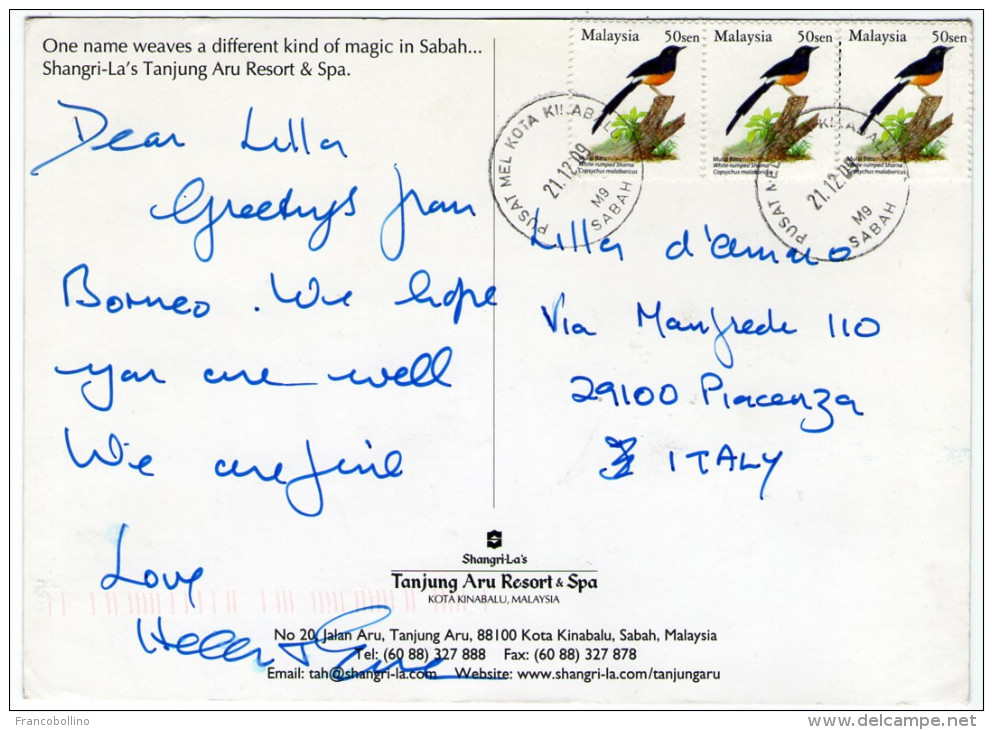 One name weaves a different kind of magic in Sabah...
Shangri-La's Tanjung Aru Resort & Spa.
Malaysia 50sen
Malaysia 50sen
Malaysia 50sen
Murai Batu
White-rumped Shama
Copsychus malabaricus
White-rumped Shama
Copsychus malabaricus
White-rumped Shama
Copsychus malabaricus
PUSAT MEL KOTA KINABALU
21.12.09
M9
SABAH
PUSAT MEL KINABALU
21.12.09
M9
SABAH
Dear Lilla
Greetings from
Borneo. We hope
you are well
We are fine
Love
Helen +
Lilla d'amaro
Via Manfredi 110
29100 Piacenza
ITALY
Shangri-La's
Tanjung Aru Resort & Spa
KOTA KINABALU, MALAYSIA
No 20, Jalan Aru, Tanjung Aru, 88100 Kota Kinabalu, Sabah, Malaysia
Tel: (60 88) 327 888 Fax: (60 88) 327 878
Email: tah@shangri-la.com Website: www.shangri-la.com/tanjungaru
Francobollino
delcampe.net